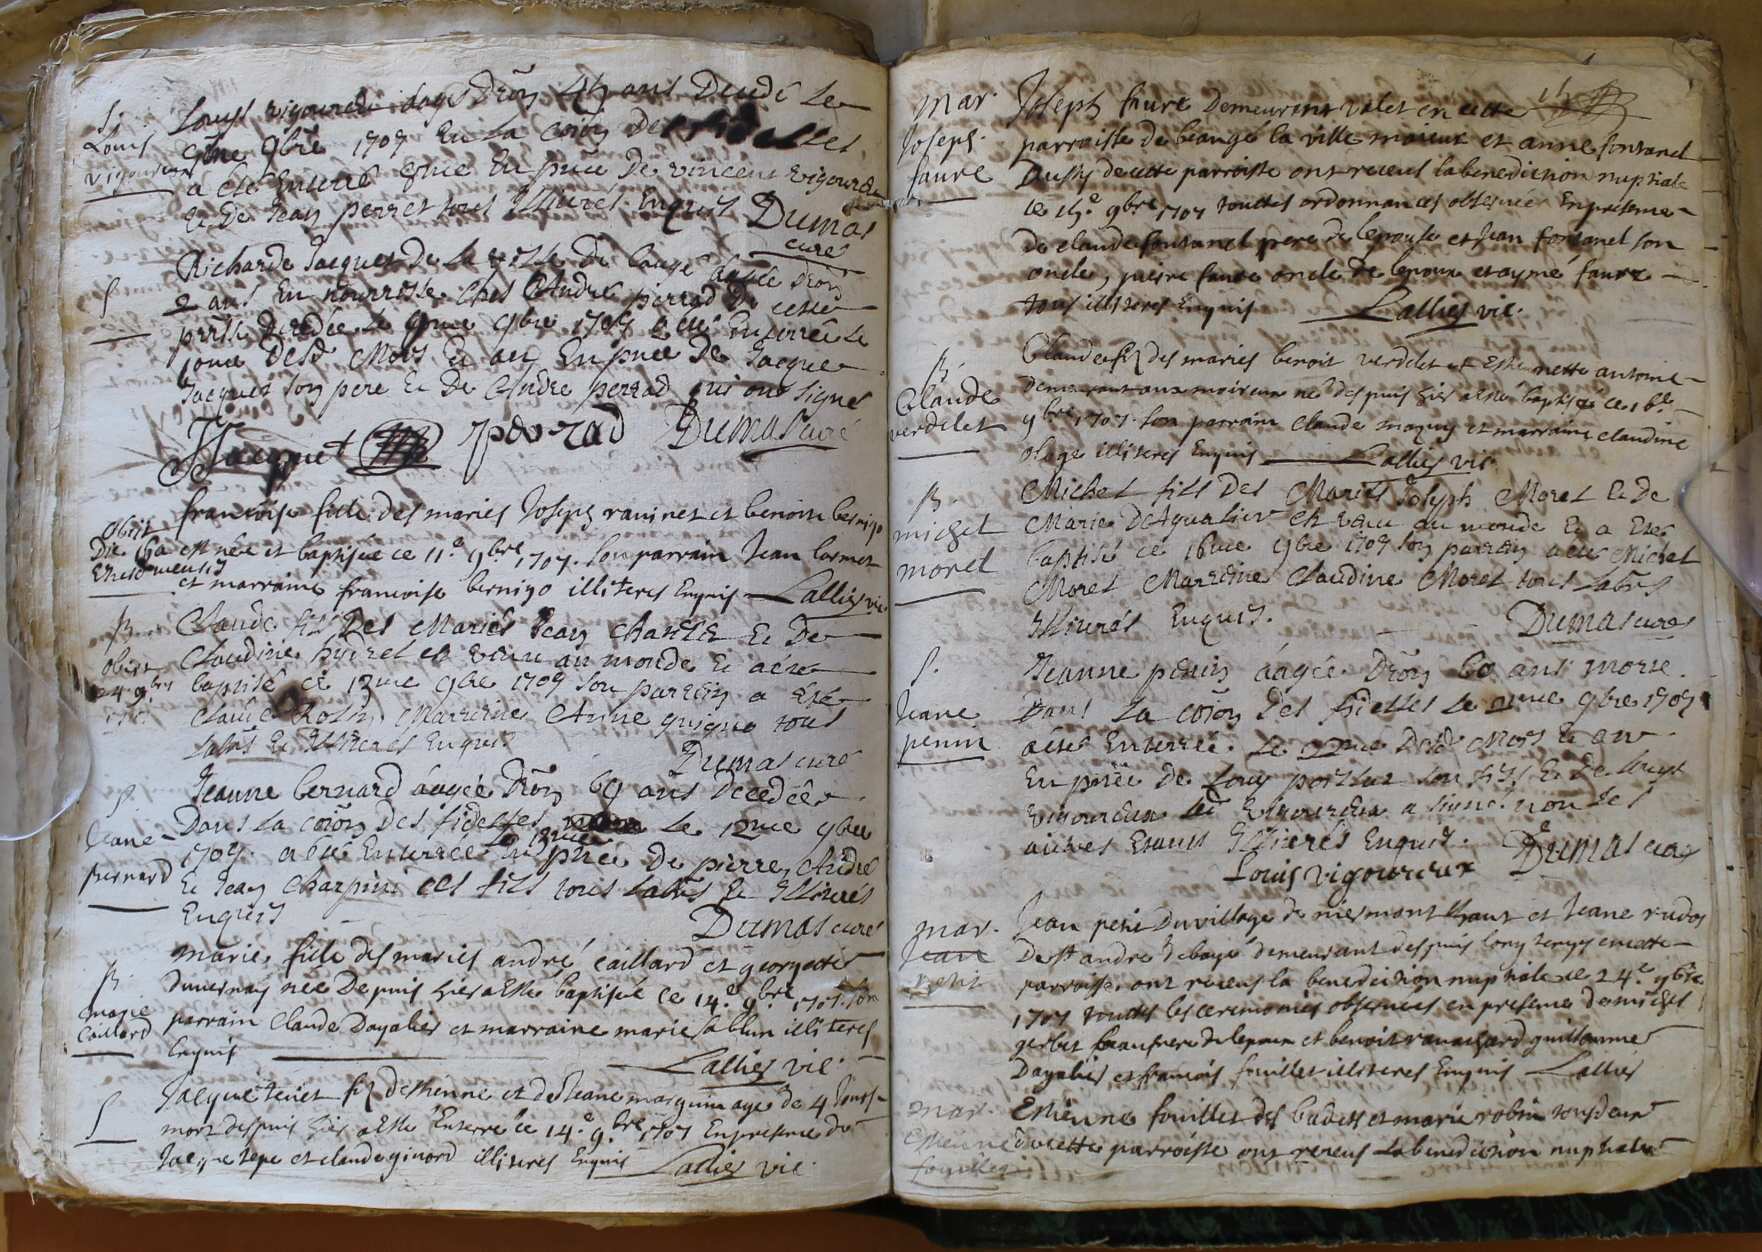 S.
Louis
vigoureux
Louys vigoureux aagé d'eñ 45 ans decedé le
9bre 1707 en la coiõn des fidelles
a été enterré en pnce de vincent vigoureux
et de Jean perret tous Illiterés Enquis Dumas
curé
S
Richarde Jacquet de la ville de baugé aagée d'eñ
2 ans en nourrisse chés André perrad de cette
prsse decedée le 9me 9bre 1707 a été enterrée le
10me desd. Mois et an en pnce de Jacque
Jacquet son pere et de André perrad qui ont signé
J Jacquet perrad Dumas curé
obiit
francoise fille des mariés Joseph raninet et benoite bernigo
est née et baptisée ce 11e 9bre 1707. son parrain Jean
et marraine francoise bernigo illiteres Enquis Lallies vic
B
obiit
24 9bre
Claude fils des Mariés Jean et de
Claudine est venu au monde et a été
baptisé ce 12me 9bre 1707 son parrein a été
Claude Rolin Marreine Anne tous
labrs et Illiterés Enquis
Dumas curé
S.
Jeane
bernard
Jeanne bernard aagée d'eñ 60 ans decedée
Dans la coiõn des fidelles le 12me 9bre
1707. a été enterrée le 13me en pnce de pierre, André
et Jean Charpini ces fils tous labrs et Illiterés
Enquis
Dumas curé
B.
marie
Caillard
Marie, fille des mariés andré caillard et georgette
duvernay née depuis hier a esté baptisée ce 14e 9bre 1707. son
parrain Claude Dagalier et marraine marie illiteres
Enquis Lallies vic.
S
Jacque tenet fiz d'esthienne et de Jeane marguin agé de 4 jours
mort despuis hier a esté Enterré ce 14e 9bre 1707 En presence de
Jacque tepe et claude ginord illiteres Enquis Lallies vic.
Mar.
Joseph
faure
Joseph faure demeurant valet en cette
parroisse de beaugé la ville et anne fontanel
Aussy de cette parroisse ont receus la benediction nuptiale
ce 15e 9bre 1707 touttes ordonnances observées En presence
de claude fontanel pere de l'epouse et Jean fontanel son
oncle, pierre faure oncle de l'epoux et aymé faure
tous illiteres Enquis Lallies vic.
B
Claude
verdelet
Claude fiz des mariés benoit verdelet et Estiennette antoine
demeurant aux moireux né despuis hier a esté baptisé ce 16e
9bre 1707. son parrain Claude et marraine claudine
illiteres Enquis Lallies vic
B
michel
morel
Michel fils des Mariés Joseph Morel et de
Marie Dagualier est venu au monde et a été
baptisé ce 16me 9bre 1707 son parrein a été Michel
Morel Marreine Claudine Morel tous labrs
Illiterés Enquis.
Dumas curé
S.
Jeane
penin
Jeanne penin aagée d'eñ 60 ans morte
Dans la coiõn des fidelles le 9bre 1707
a été Enterrée le desd. Mois et an
en pnce de Louys son fils et de Louys
vigoureux led. vigoureux a signé non les
autres Estants Illiterés Enquis. Dumas curé
Louis vigoureux
mar.
Jean
petit
Jean petit du village de niermont et Jeane rudos
de st andré de bagé demeurant despuis long temps en cette
parroisse ont receus la benediction nuptiale ce 24e 9bre
1707 touttes les ceremonies observées en presence de michel
gerbet beaufrere de l'epoux et benoit ravachard guillaume
Dagalies et francois fouillet illiteres Enquis Lallies
mar.
Estienne
fouillet
Estienne fouillet des badets et marie robin tous deux
de cette parroisse ont receus la benediction nuptiale